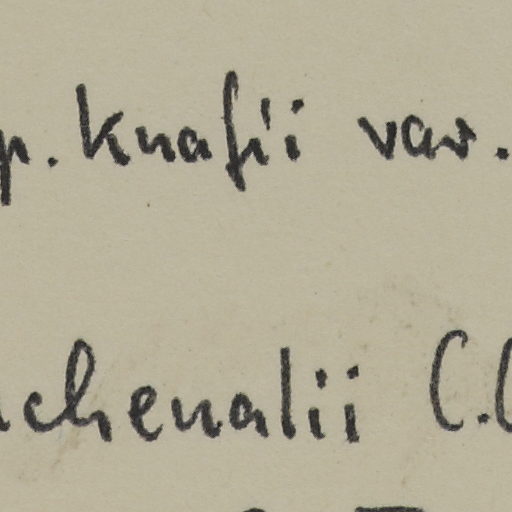 p. knafii var.
chenalii C.